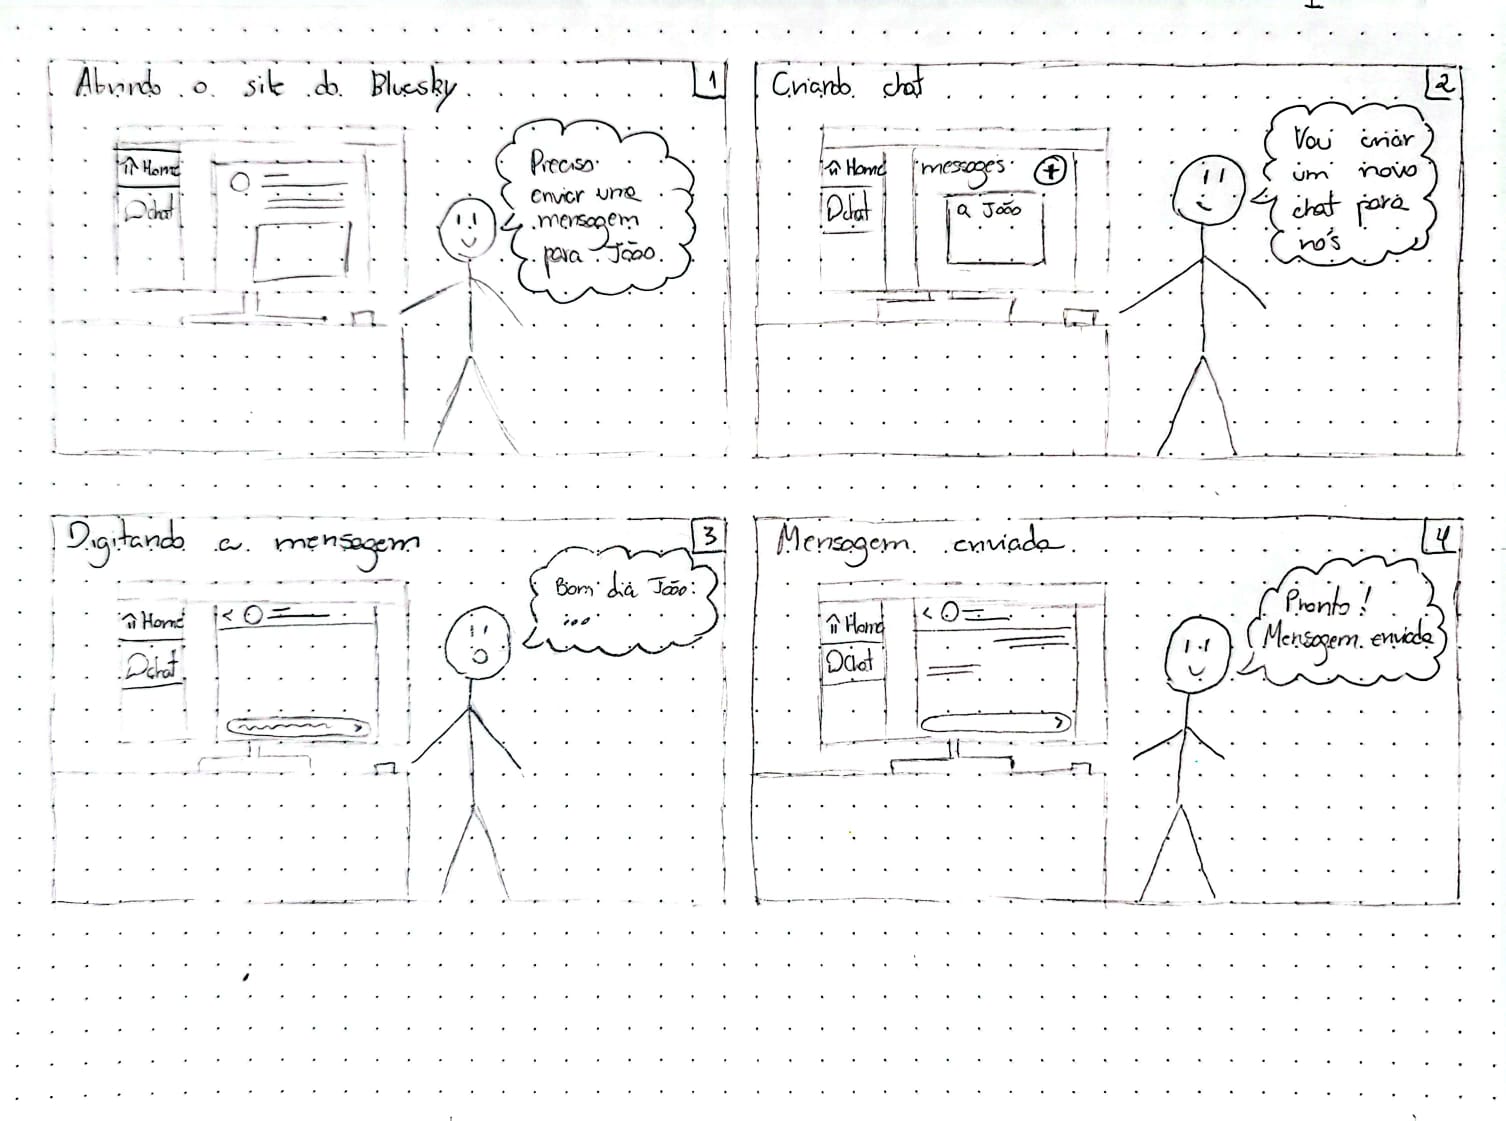 Abrindo o site do Bluesky.
1
Home
chat
Preciso
enviar uma
mensagem
para João.
Criando chat
2
Home
chat
messages
João
Vou criar
um novo
chat para
nós
Digitando a mensagem
3
Home
chat
Bom dia João:
...
Mensagem enviada.
4
Home
chat
Pronto!
Mensagem enviada